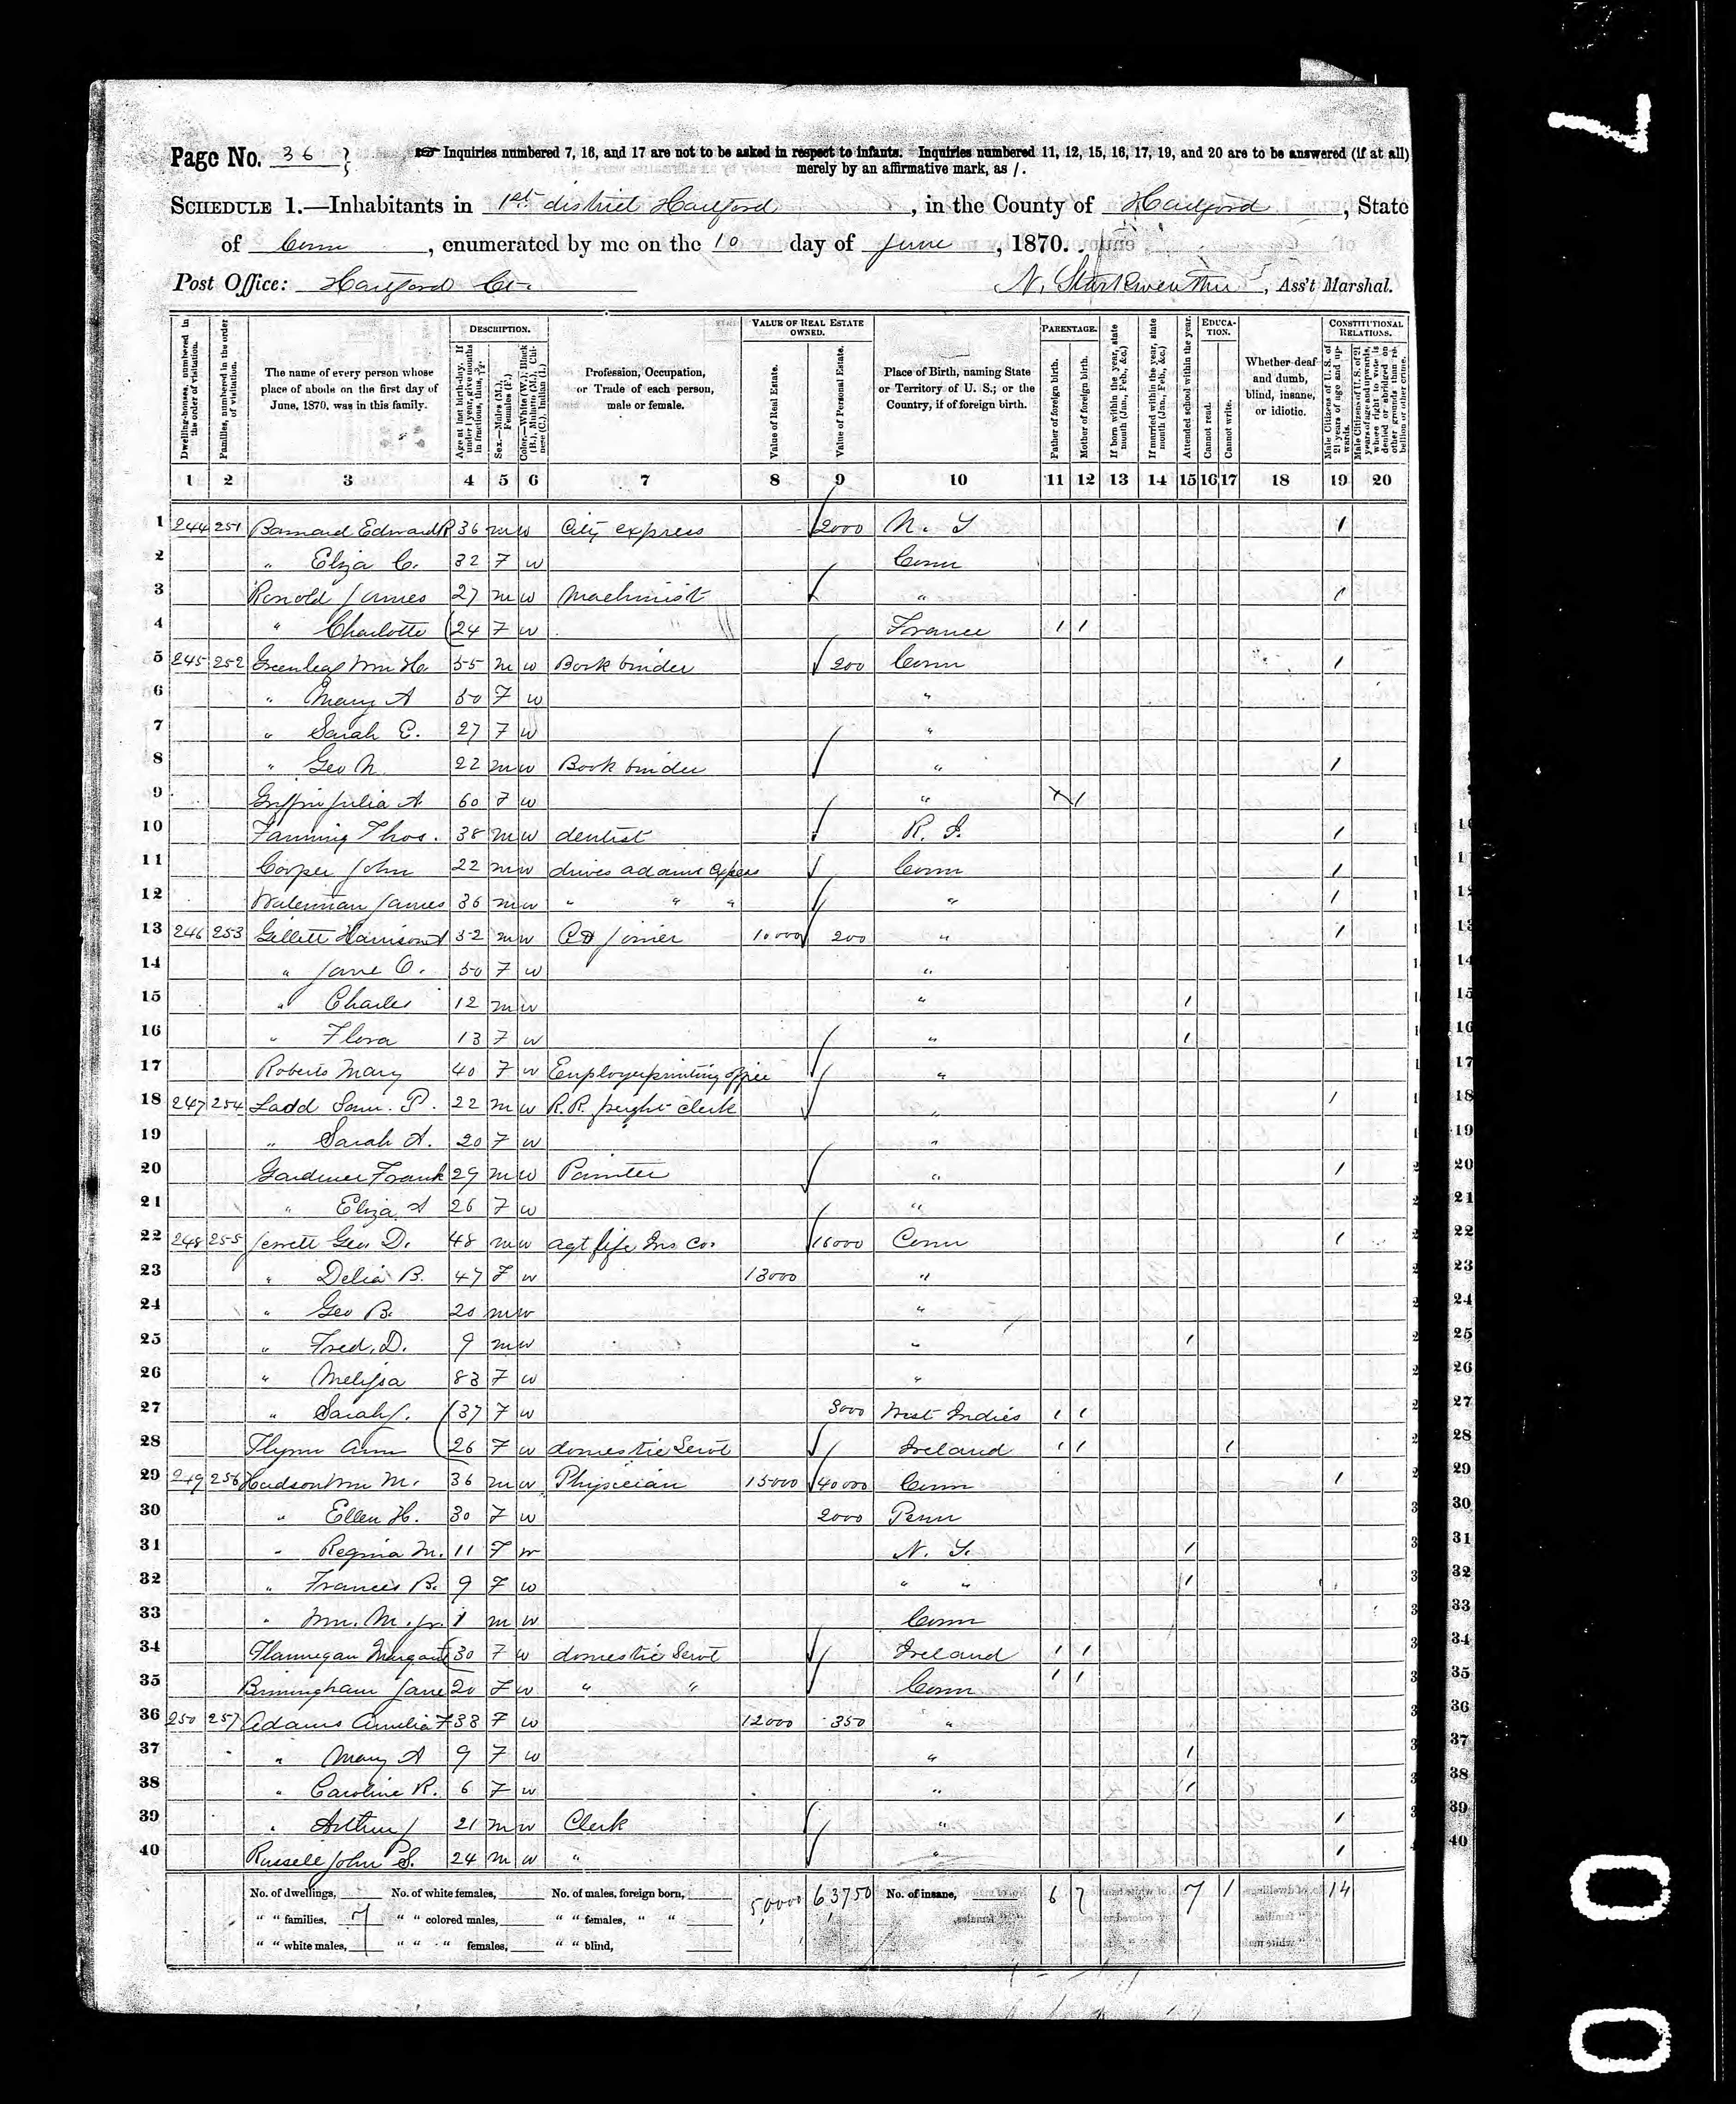 Page No. 36
Inquiries numbered 7, 16, and 17 are not to be asked in respect to infants. Inquiries numbered 11, 12, 15, 16, 17, 19, and 20 are to be answered (if at all)
merely by an affirmative mark, as /.
SCHEDULE 1.—Inhabitants in 1st district Hartford, in the County of Hartford, State
of Conn, enumerated by me on the 10 day of June, 1870.
Post Office: Hartford Ct. N. Starkweather, Ass't Marshal.
Dwelling-houses, numbered in the order of visitation.
Families, numbered in the order of visitation.
The name of every person whose place of abode on the first day of June, 1870, was in this family.
DESCRIPTION.
Age at last birth-day. If under 1 year, give months in fractions, thus, 3/12.
Sex.—Males (M.), Females (F.)
Color.—White (W.), Black (B.), Mulatto (M.), Chinese (C.), Indian (I.)
Profession, Occupation, or Trade of each person, male or female.
VALUE OF REAL ESTATE OWNED.
Value of Real Estate.
Value of Personal Estate.
Place of Birth, naming State or Territory of U. S.; or the Country, if of foreign birth.
PARENTAGE.
Father of foreign birth.
Mother of foreign birth.
If born within the year, state month (Jan., Feb., &c.)
If married within the year, state month (Jan., Feb., &c.)
Attended school within the year.
EDUCATION.
Cannot read.
Cannot write.
Whether deaf and dumb, blind, insane, or idiotic.
CONSTITUTIONAL RELATIONS.
Male Citizens of U. S. of 21 years of age and upwards.
Male Citizens of U. S. of 21 years of age and upwards, whose right to vote is denied or abridged on other grounds than rebellion or other crime.
1 2 3 4 5 6 7 8 9 10 11 12 13 14 15 16 17 18 19 20
1 244 251 Barnard Edward R 36 m w City express 2000 N. Y /
2 " Eliza C. 32 F w Conn
3 Renold James 27 m w Machinist " /
4 " Charlotte 24 F w France / /
5 245 252 Greenleaf Wm H. 55 m w Book binder 200 Conn /
6 " Mary A 50 F w "
7 " Sarah E. 27 F w "
8 " Geo N. 22 m w Book binder " /
9 Griffin Julia A 60 F w " /
10 Fanning Thos. 38 m w dentist R. I. /
11 Cooper John 22 m w drives adams express Conn /
12 Waterman James 36 m w " " " " /
13 246 253 Gillett Harrison 52 m w joiner 10000 200 " /
14 " Jane O. 50 F w "
15 " Charles 12 m w " /
16 " Flora 13 F w " /
17 Roberts Mary 40 F w Employer printing office "
18 247 254 Ladd Sam. P. 22 m w R.R. freight clerk " /
19 " Sarah A. 20 F w "
20 Gardiner Frank 29 m w Painter " /
21 " Eliza A 26 F w "
22 248 255 Jewett Geo D. 48 m w agt life Ins Co. 16000 Conn /
23 " Delia B. 47 F w 13000 "
24 " Geo B. 20 m w "
25 " Fred. D. 9 m w " /
26 " Melissa 83 F w "
27 " Sarah J. 37 F w 3000 West Indies / /
28 Flynn Ann 26 F w domestic Servt Ireland / / /
29 249 256 Hudson Wm M. 36 m w Physician 15000 40000 Conn /
30 " Ellen H. 30 F w 2000 Penn
31 " Regina M. 11 F w N. Y. /
32 " Frances B. 9 F w " " /
33 " Wm. M. Jr. 1 m w Conn
34 Flannegan Margaret 30 F w domestic Servt Ireland / /
35 Birmingham Jane 20 F w " " Conn / /
36 250 257 Adams Amelia F 38 F w 12000 350 "
37 " Mary A 9 F w " /
38 " Caroline R. 6 F w " /
39 " Arthur J 21 m w Clerk " /
40 Russell John S. 24 m w " " /
No. of dwellings, No. of white females, No. of males, foreign born, 50000 63750 No. of insane, 6 7 7 1 14
" " families, 7 " " colored males, " " females, " "
" " white males, " " " females, " " blind,